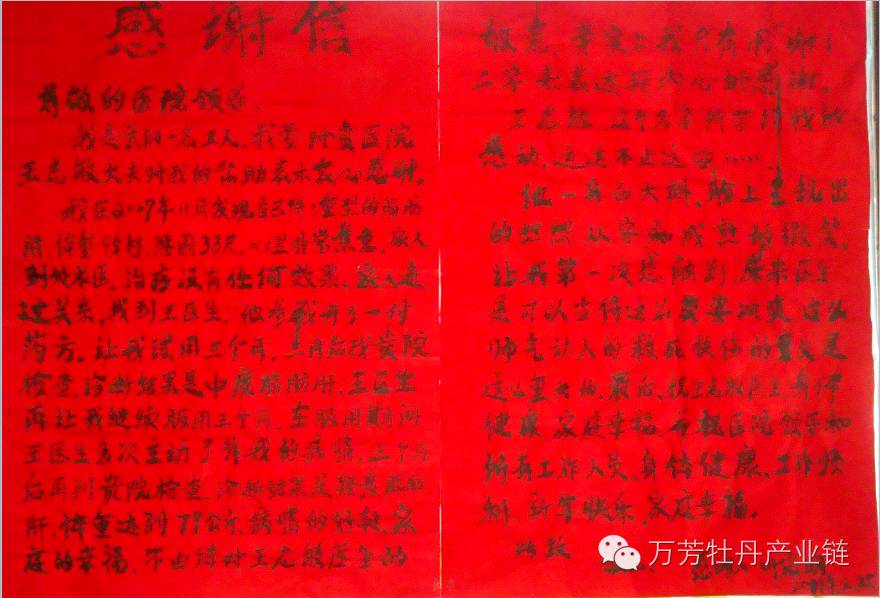 感谢信
尊敬的医院领导、
我是云铜一名工人，我要对贵医院
王志敏大夫对我的帮助表示衷心感谢。
我在2009年11月发现自己
肝，体重95，腰围33尺，心里非常焦急，家人
到处求医，治疗没有任何效果，家人通
过关系，找到王医生，他给我开了一付
药方，让我试用三个月，三月后找贵院
检查，诊断结果是中度脂肪肝，王医生
再让我继续服用三个月，在服用期间
王医生多次主动了解我的病情，三个月
后再到贵院检查，诊断结果是轻度脂肪
肝，体重达到79公斤，病情的好转，家
庭的幸福，不由得对王医生的
敬意，事实上我只有用谢谢
二字来表达我内心的感谢。
感动，这还不止这些……
他一身白大褂，脸上呈现出
的坦然从容和成熟的微笑，
让我第一次感触到，原来医生
是可以当得这么
帅气动人的救死扶伤的意义是
这么重大的，最后，王医生身体
健康 家庭幸福，祝医院领导和
所有工作人员，身体健康、工作顺
利 新年快乐，家庭幸福。
此致
万芳牡丹产业链